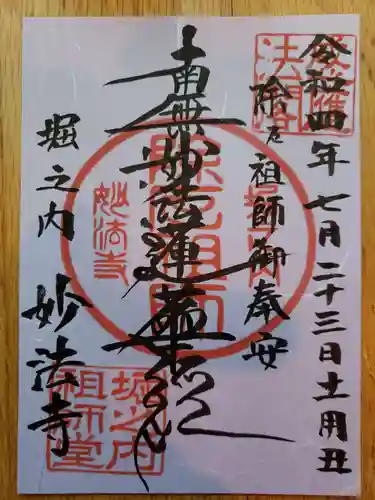 令和四年七月二十三日土用丑
除厄祖師御奉安
南無妙法蓮華経
堀之内
妙法寺
妙法寺
堀之内
祖師堂